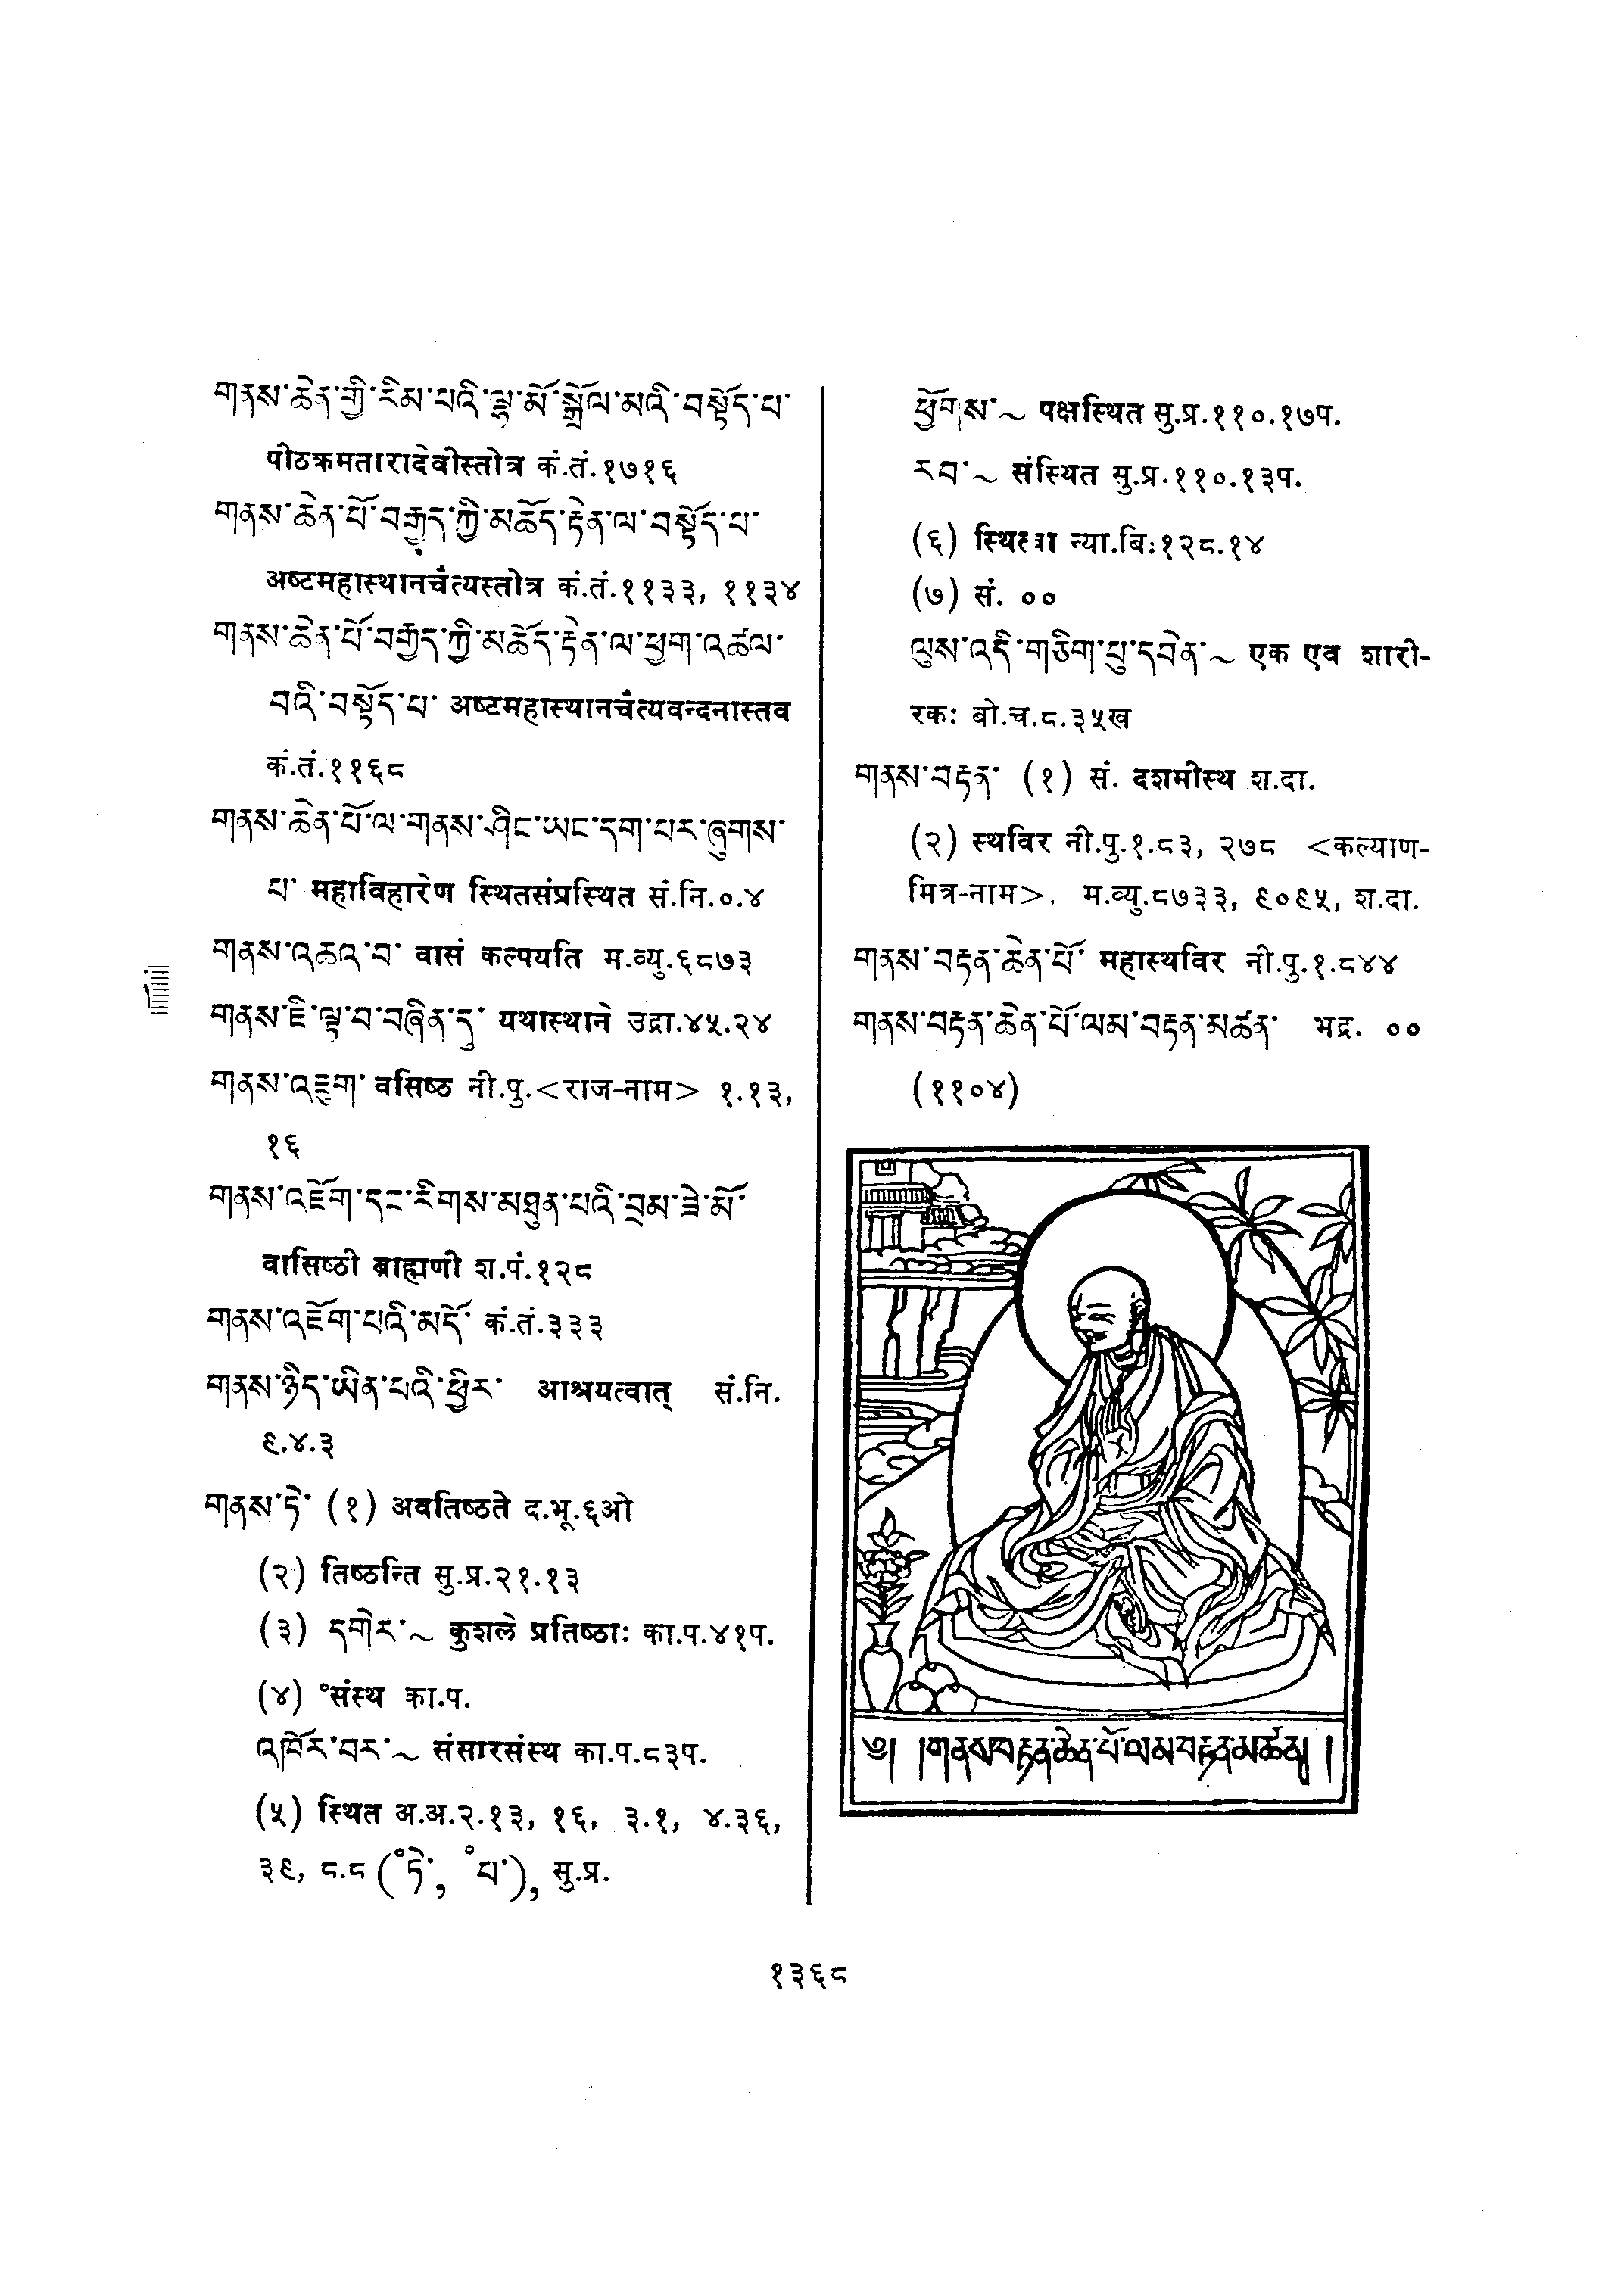 གནས་ཆེན་གྱི་རིམ་པའི་ལྷ་མོ་སྒྲོལ་མའི་བསྟོད་པ་
पीठक्रमतारादेवीस्तोत्र कं.तं.१७१६
གནས་ཆེན་པོ་བརྒྱད་ཀྱི་མཆོད་རྟེན་ལ་བསྟོད་པ་
अष्टमहास्थानचैत्यस्तोत्र कं.तं.११३३, ११३४
གནས་ཆེན་པོ་བརྒྱད་ཀྱི་མཆོད་རྟེན་ལ་ཕྱག་འཚལ་
བའི་བསྟོད་པ་ अष्टमहास्थानचैत्यवन्दनास्तव
कं.तं.११६८
གནས་ཆེན་པོ་ལ་གནས་ཤིང་ཡང་དག་པར་ཞུགས་
པ་ महाविहारेण स्थितसंप्रस्थित सं.नि.०.४
གནས་འཆའ་བ་ वासं कल्पयति म.व्यु.६८७३
གནས་ཇི་ལྟ་བ་བཞིན་དུ་ यथास्थाने उद्रा.४५.२४
གནས་འཇུག་ वसिष्ठ नी.पु.<राज-नाम> १.१३,
१६
གནས་འཇོག་དང་རིགས་མཐུན་པའི་བྲམ་ཟེ་མོ་
वासिष्ठी ब्राह्मणी श.पं.१२८
གནས་འཇོག་པའི་མདོ་ कं.तं.३३३
གནས་ཉིད་ཡིན་པའི་ཕྱིར་ आश्रयत्वात् सं.नि.
९.४.३
གནས་ཏེ་ (१) अवतिष्ठते द.भू.६ओ
(२) तिष्ठन्ति सु.प्र.२१.१३
(३) དགེར་~ कुशले प्रतिष्ठाः का.प.४१प.
(४) °संस्थ का.प.
འཁོར་བར་~ संसारसंस्थ का.प.८३प.
(५) स्थित अ.अ.२.१३, १६, ३.१, ४.३६,
३९, ८.८ (°ཏེ་, °པ་), सु.प्र.
ཕྱོགས་~ पक्षस्थित सु.प्र.११०.१७प.
རབ་~ संस्थित सु.प्र.११०.१३प.
(६) स्थित्वा न्या.बि.१२८.१४
(७) सं. ००
ལུས་འདི་གཅིག་པུ་དབེན་~ एक एव शारी-
रकः बो.च.८.३५ख
གནས་བརྟན་ (१) सं. दशमीस्थ श.दा.
(२) स्थविर नी.पु.१.८३, २७८ <कल्याण-
मित्र-नाम>. म.व्यु.८७३३, ९०९५, श.दा.
གནས་བརྟན་ཆེན་པོ་ महास्थविर नी.पु.१.८४४
གནས་བརྟན་ཆེན་པོ་ལམ་བརྟན་མཚན་ भद्र. ००
(११०४)
༄། །གནས་བརྟན་ཆེན་པོ་ལམ་བརྟན་མཚན། །
१३६८